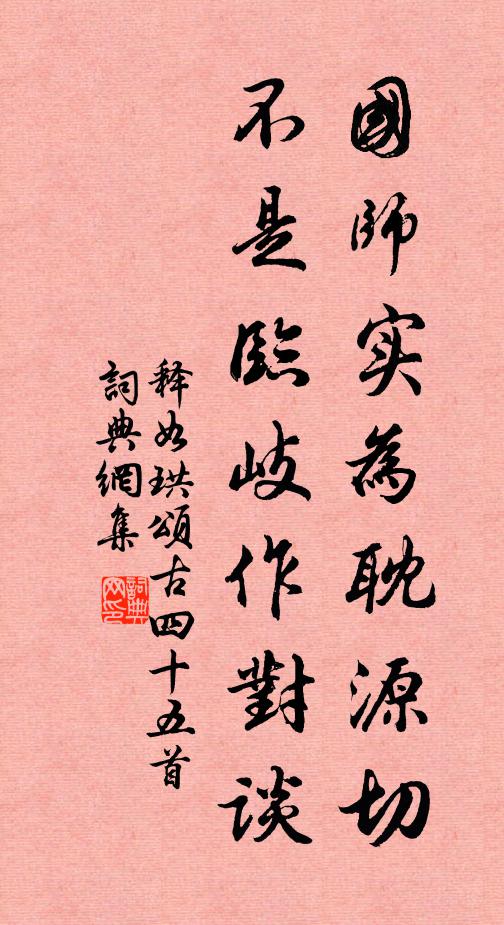 國師实為耽源切
不是臨岐作對谈
释如珙頌古四十五首
詞典網集
詞典网印